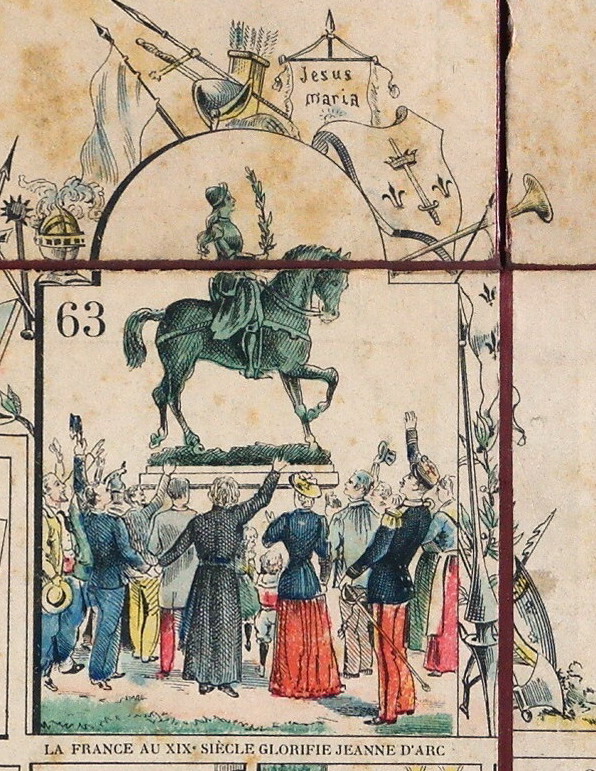 Jesus
Maria
63
LA FRANCE AU XIXᵉ SIÈCLE GLORIFIE JEANNE D'ARC